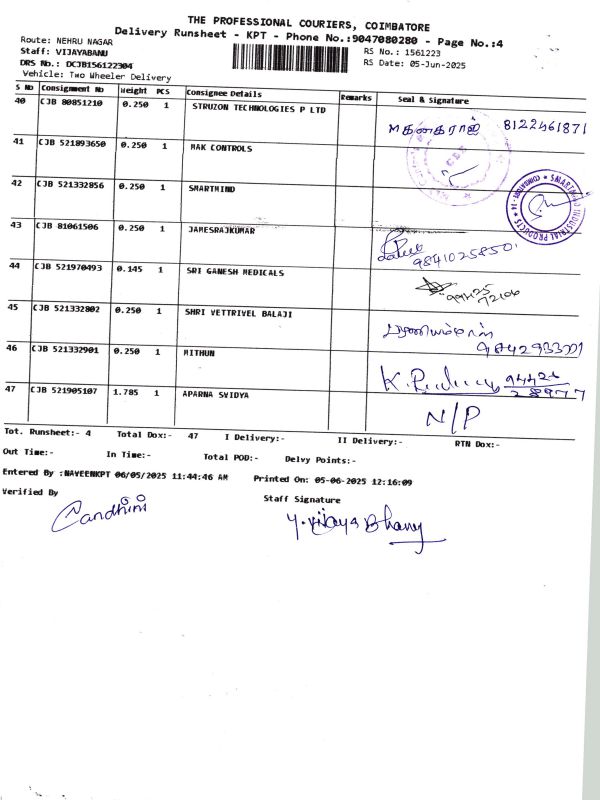 THE PROFESSIONAL COURIERS, COIMBATORE
Delivery Runsheet - KPT - Phone No.:9047080280 - Page No.:4
Route: NEHRU NAGAR
Staff: VIJAYABANU
DRS No.: DCJB156122304
Vehicle: Two Wheeler Delivery
RS No.: 1561223
RS Date: 05-Jun-2025
S No Consignment No Weight PCS Consignee Details Remarks Seal & Signature
40 CJB 80851210 0.250 1 STRUZON TECHNOLOGIES P LTD 8122461871
41 CJB 521893650 0.250 1 MAK CONTROLS
42 CJB 521332856 0.250 1 SMARTMIND
43 CJB 81061506 0.250 1 JAMESRAJKUMAR 9841025850
44 CJB 521970493 0.145 1 SRI GANESH MEDICALS 99425 72106
45 CJB 521332802 0.250 1 SHRI VETTRIVEL BALAJI
46 CJB 521332901 0.250 1 MITHUN 94426 28977
47 CJB 521905107 1.785 1 APARNA SVIDYA N/P
Tot. Runsheet:- 4 Total Dox:- 47 I Delivery:- II Delivery:- RTN Dox:-
Out Time:- In Time:- Total POD:- Delvy Points:-
Entered By :NAVEENKPT 06/05/2025 11:44:46 AM Printed On: 05-06-2025 12:16:09
Verified By Staff Signature
Nandhini Y. Vijaya Bhanu